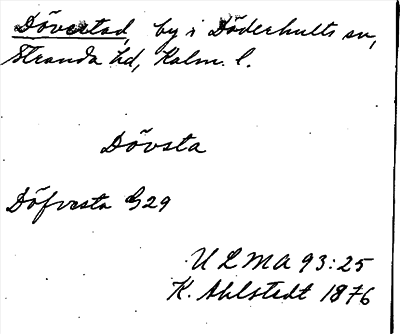 Döverstad, by i Döderhults sn,
Stranda hd, Kalm. l.
Dövsta
Döfvesta G29
ULMA 93:25
K. Ahlstedt 1876